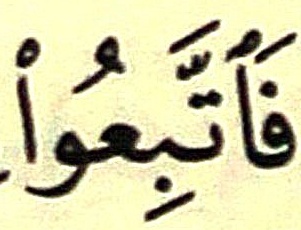 فَٱتَّبِعُوا۟